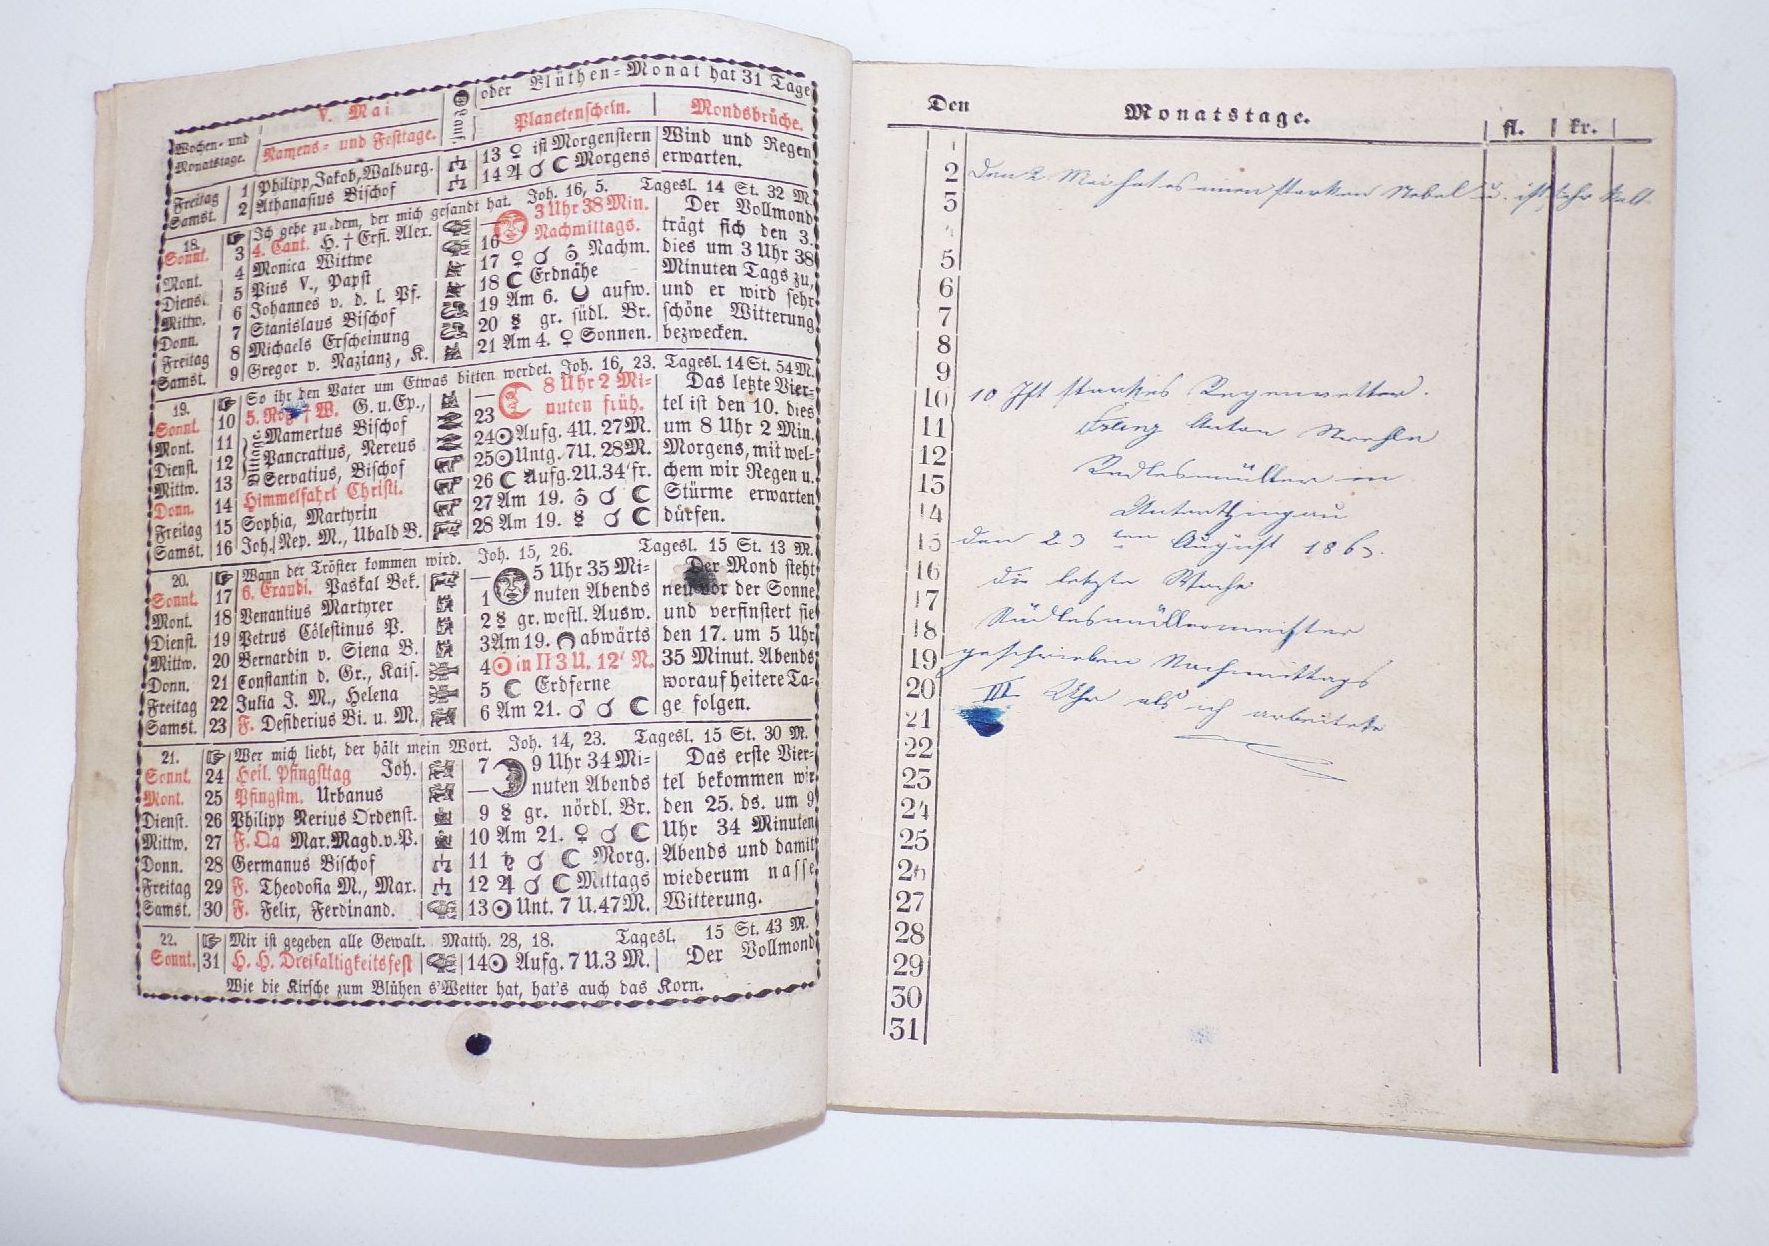 V. Mai
oder Blüthen-Monat hat 31 Tage
Wochen- und Monatstage.
Namens- und Festtage.
Lauf.
Planetenschein.
Mondsbrüche.
Freitag 1 Philipp, Jakob, Walburg. 13 ♀ ist Morgenstern Wind und Regen
Samst. 2 Athanasius Bischof 14 ♃ ☌ ☾ Morgens erwarten.
18. ☞ Ich gehe zu dem, der mich gesandt hat. Joh. 16, 5. Tagesl. 14 St. 32 M.
Sonnt. 3 4. Cant. H. † Erfi. Alex. 3 Uhr 38 Min. Der Vollmond
Mont. 4 Monica Wittwe 16 Nachmittags. trägt sich den 3.
Dienst. 5 Pius V., Papst 17 ♀ ☌ ♁ Nachm. dies um 3 Uhr 38
Mittw. 6 Johannes v. d. l. Pf. 18 ☾ Erdnähe Minuten Tags zu,
Donn. 7 Stanislaus Bischof 19 Am 6. aufw. und er wird sehr
Freitag 8 Michaels Erscheinung 20 ☿ gr. südl. Br. schöne Witterung
Samst. 9 Gregor v. Nazianz, K. 21 Am 4. ♀ Sonnen. bezwecken.
19. ☞ So ihr den Vater um Etwas bitten werdet. Joh. 16, 23. Tagesl. 14 St. 54 M.
Sonnt. 10 5. Rog. † W. G. u. Ep., — 8 Uhr 2 Mi= Das letzte Vier-
Mont. 11 Mamertus Bischof 23 nuten früh. tel ist den 10. dies
Dienst. 12 Pancratius, Nereus 24 ☉ Aufg. 4 U. 27 M. um 8 Uhr 2 Min.
Mittw. 13 Servatius, Bischof 25 ☉ Untg. 7 U. 28 M. Morgens, mit wel-
Donn. 14 Himmelfahrt Christi. 26 ☾ Aufg. 2 U. 34' fr. chem wir Regen u.
Freitag 15 Sophia, Martyrin 27 Am 19. ♁ ☌ ☾ Stürme erwarten
Samst. 16 Joh. Nep. M., Ubald B. 28 Am 19. ☿ ☌ ☾ dürfen.
20. ☞ Wann der Tröster kommen wird. Joh. 15, 26. Tagesl. 15 St. 13 M.
Sonnt. 17 6. Exaudi. Paskal Bek. — 5 Uhr 35 Mi= Der Mond steht
Mont. 18 Venantius Martyrer 1 nuten Abends neu vor der Sonne
Dienst. 19 Petrus Cölestinus P. 2 ☿ gr. westl. Ausw. und verfinstert sie
Mittw. 20 Bernardin v. Siena B. 3 Am 19. abwärts den 17. um 5 Uhr
Donn. 21 Constantin d. Gr., Kais. 4 ☉ in II 3 U. 12' N. 35 Minut. Abends
Freitag 22 Julia J. M., Helena 5 ☾ Erdferne worauf heitere Ta-
Samst. 23 F. Desiderius Bi. u. M. 6 Am 21. ♂ ☌ ☾ ge folgen.
21. ☞ Wer mich liebt, der hält mein Wort. Joh. 14, 23. Tagesl. 15 St. 30 M.
Sonnt. 24 Heil. Pfingsttag Joh. 7 9 Uhr 34 Mi= Das erste Vier-
Mont. 25 Pfingstm. Urbanus — nuten Abends tel bekommen wir
Dienst. 26 Philipp Nerius Ordenst. 9 ☿ gr. nördl. Br. den 25. ds. um 9
Mittw. 27 F. Qa Mar. Magd. v. P. 10 Am 21. ♀ ☌ ☾ Uhr 34 Minuten
Donn. 28 Germanus Bischof 11 ♄ ☌ ☾ Morg. Abends und damit
Freitag 29 F. Theodosia M., Max. 12 ♃ ☌ ☾ Mittags wiederum nasse
Samst. 30 F. Felix, Ferdinand. 13 ☉ Unt. 7 U. 47 M. Witterung.
22. ☞ Mir ist gegeben alle Gewalt. Matth. 28, 18. Tagesl. 15 St. 43 M.
Sonnt. 31 H. H. Dreifaltigkeitsfest 14 ☉ Aufg. 7 U. 3 M. Der Vollmond
Wie die Kirsche zum Blühen s'Wetter hat, hat's auch das Korn.
Den Monatstage. fl. kr.
1
2 Den 2. Mai hat es einen starken Nebel u. ist sehr kalt.
3
4
5
6
7
8
9
10 10 Ist starkes Regenwetter.
11 Franz Anton
12 Radlesmüller in
13
14 Unterthingau
15 den 23 ten August 186
16 die letzte Woche
17
18 Radlesmüllermeister
19 geschrieben Nachmittags
20 III Uhr als ich arbeitete
21
22
23
24
25
26
27
28
29
30
31